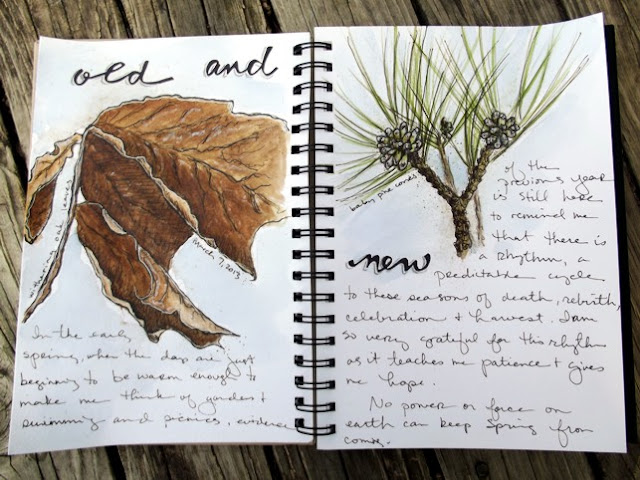 old and
withering oak leaves
March 7, 2013
In the early
spring, when the days are just
beginning to be warm enough to
make me think of gardens +
swimming and picnics, evidence
baby pine cones
new
of the
previous year
is still here
to remind me
that there is
a rhythm, a
predictable cycle
to these seasons of death, rebirth,
celebration + harvest. I am
so very grateful for this rhythm
as it teaches me patience + gives
me hope.
No power or force on
earth can keep Spring from
coming.